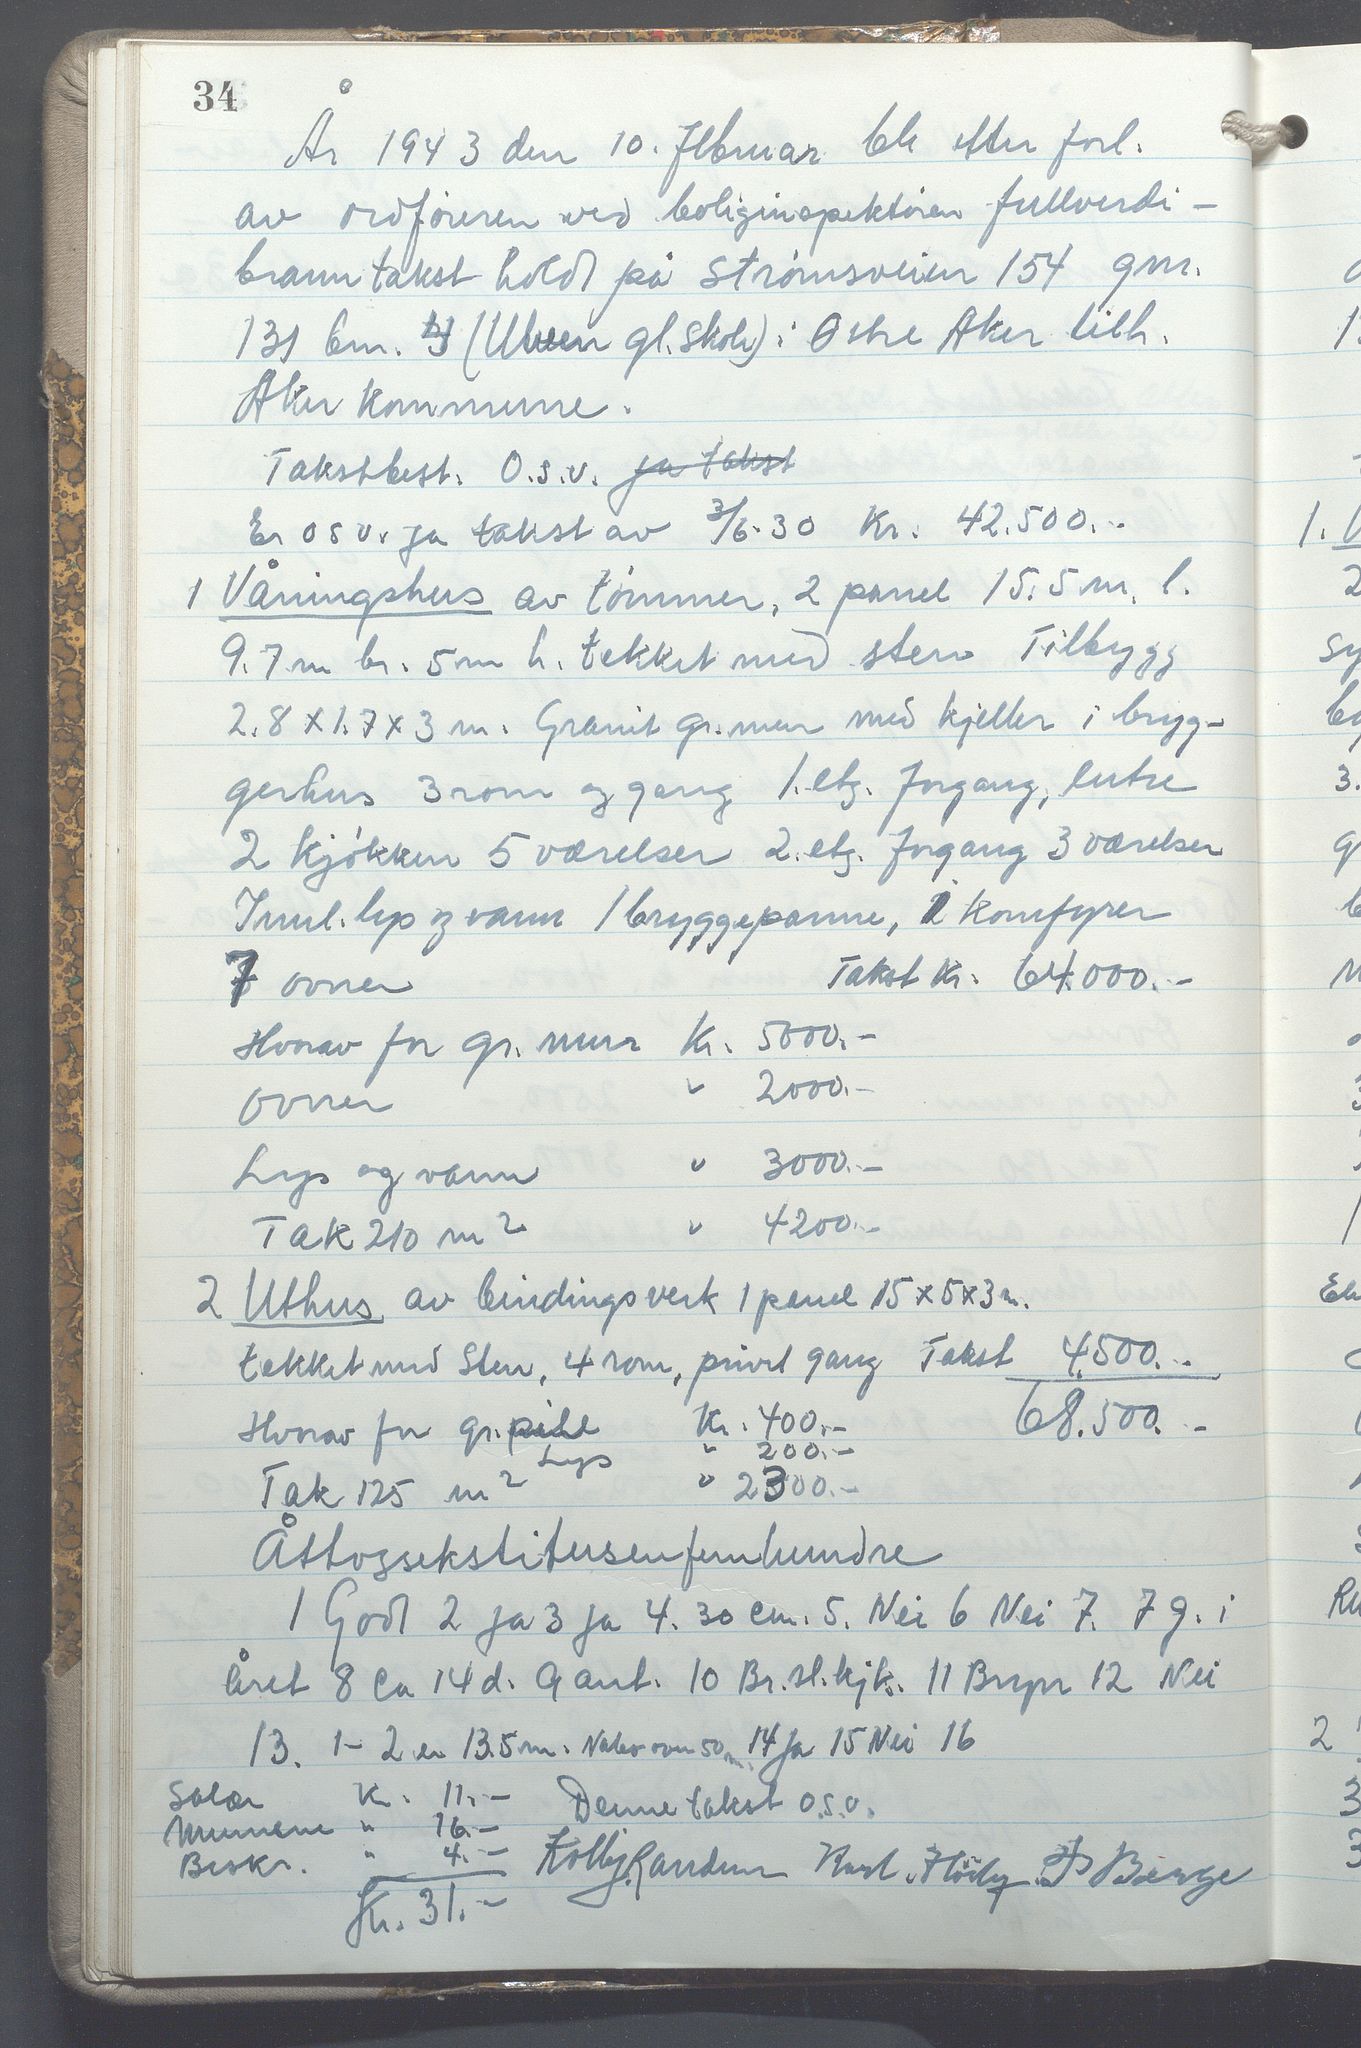 34
År 1943 den 10. februar ble etter forl.
av ordføreren ved boliginspektøren fullverdi-
branntakst holdt på Strømsveien 154 gnr.
131 bnr. (Ulven gl. skole) i Østre Aker tilh.
Aker kommune.
Takstbest. O.s.v. ja takst
Er o s v. ja takst av 3/6-30 Kr. 42.500.-
1 Våningshus av tømmer, 2 panel 15.5 m. l.
9.7 m br. 5 m h. tekket med sten Tilbygg
2.8 x 1.7 x 3 m. Granit gr.mur med kjeller i bryg-
gerhus 3 rom og gang 1. etg. forgang, entre
2 kjøkken 5 værelser 2. etg. forgang 3 værelser
Innl. lys og vann 1 bryggepanne, komfyrer
7 ovner Takst Kr. 64.000.-
Hvorav for gr. mur Kr. 5000.-
Ovner " 2000.-
Lys og vann " 3000.-
Tak 210 m2 " 4200.-
2 Uthus av bindingsverk 1 panel 15 x 5 x 3 m.
tekket med Sten, 4 rom, privet gang Takst 4.500.-
Hvorav for gr. Kr. 400.- 68.500.-
Lys " 200.-
Tak 125 m2 " 2300.-
Åttogsekstitusenfemhundre
1 God 2 ja 3 ja 4. 30 cm. 5. Nei 6 Nei 7. 7 g. i
året 8 Ca 14 d. 9 ant. 10 Br.sl.kjk. 11 Brgr 12 Nei
13. 1-2 er 13.5 m. Nabo over 50 m. 14 ja 15 Nei 16
Salær Kr. 11.- Denne takst o.s.v.
" 16.-
Beskr. " 4.- Kolbj. Randem Karl Berge
Kr. 31.-